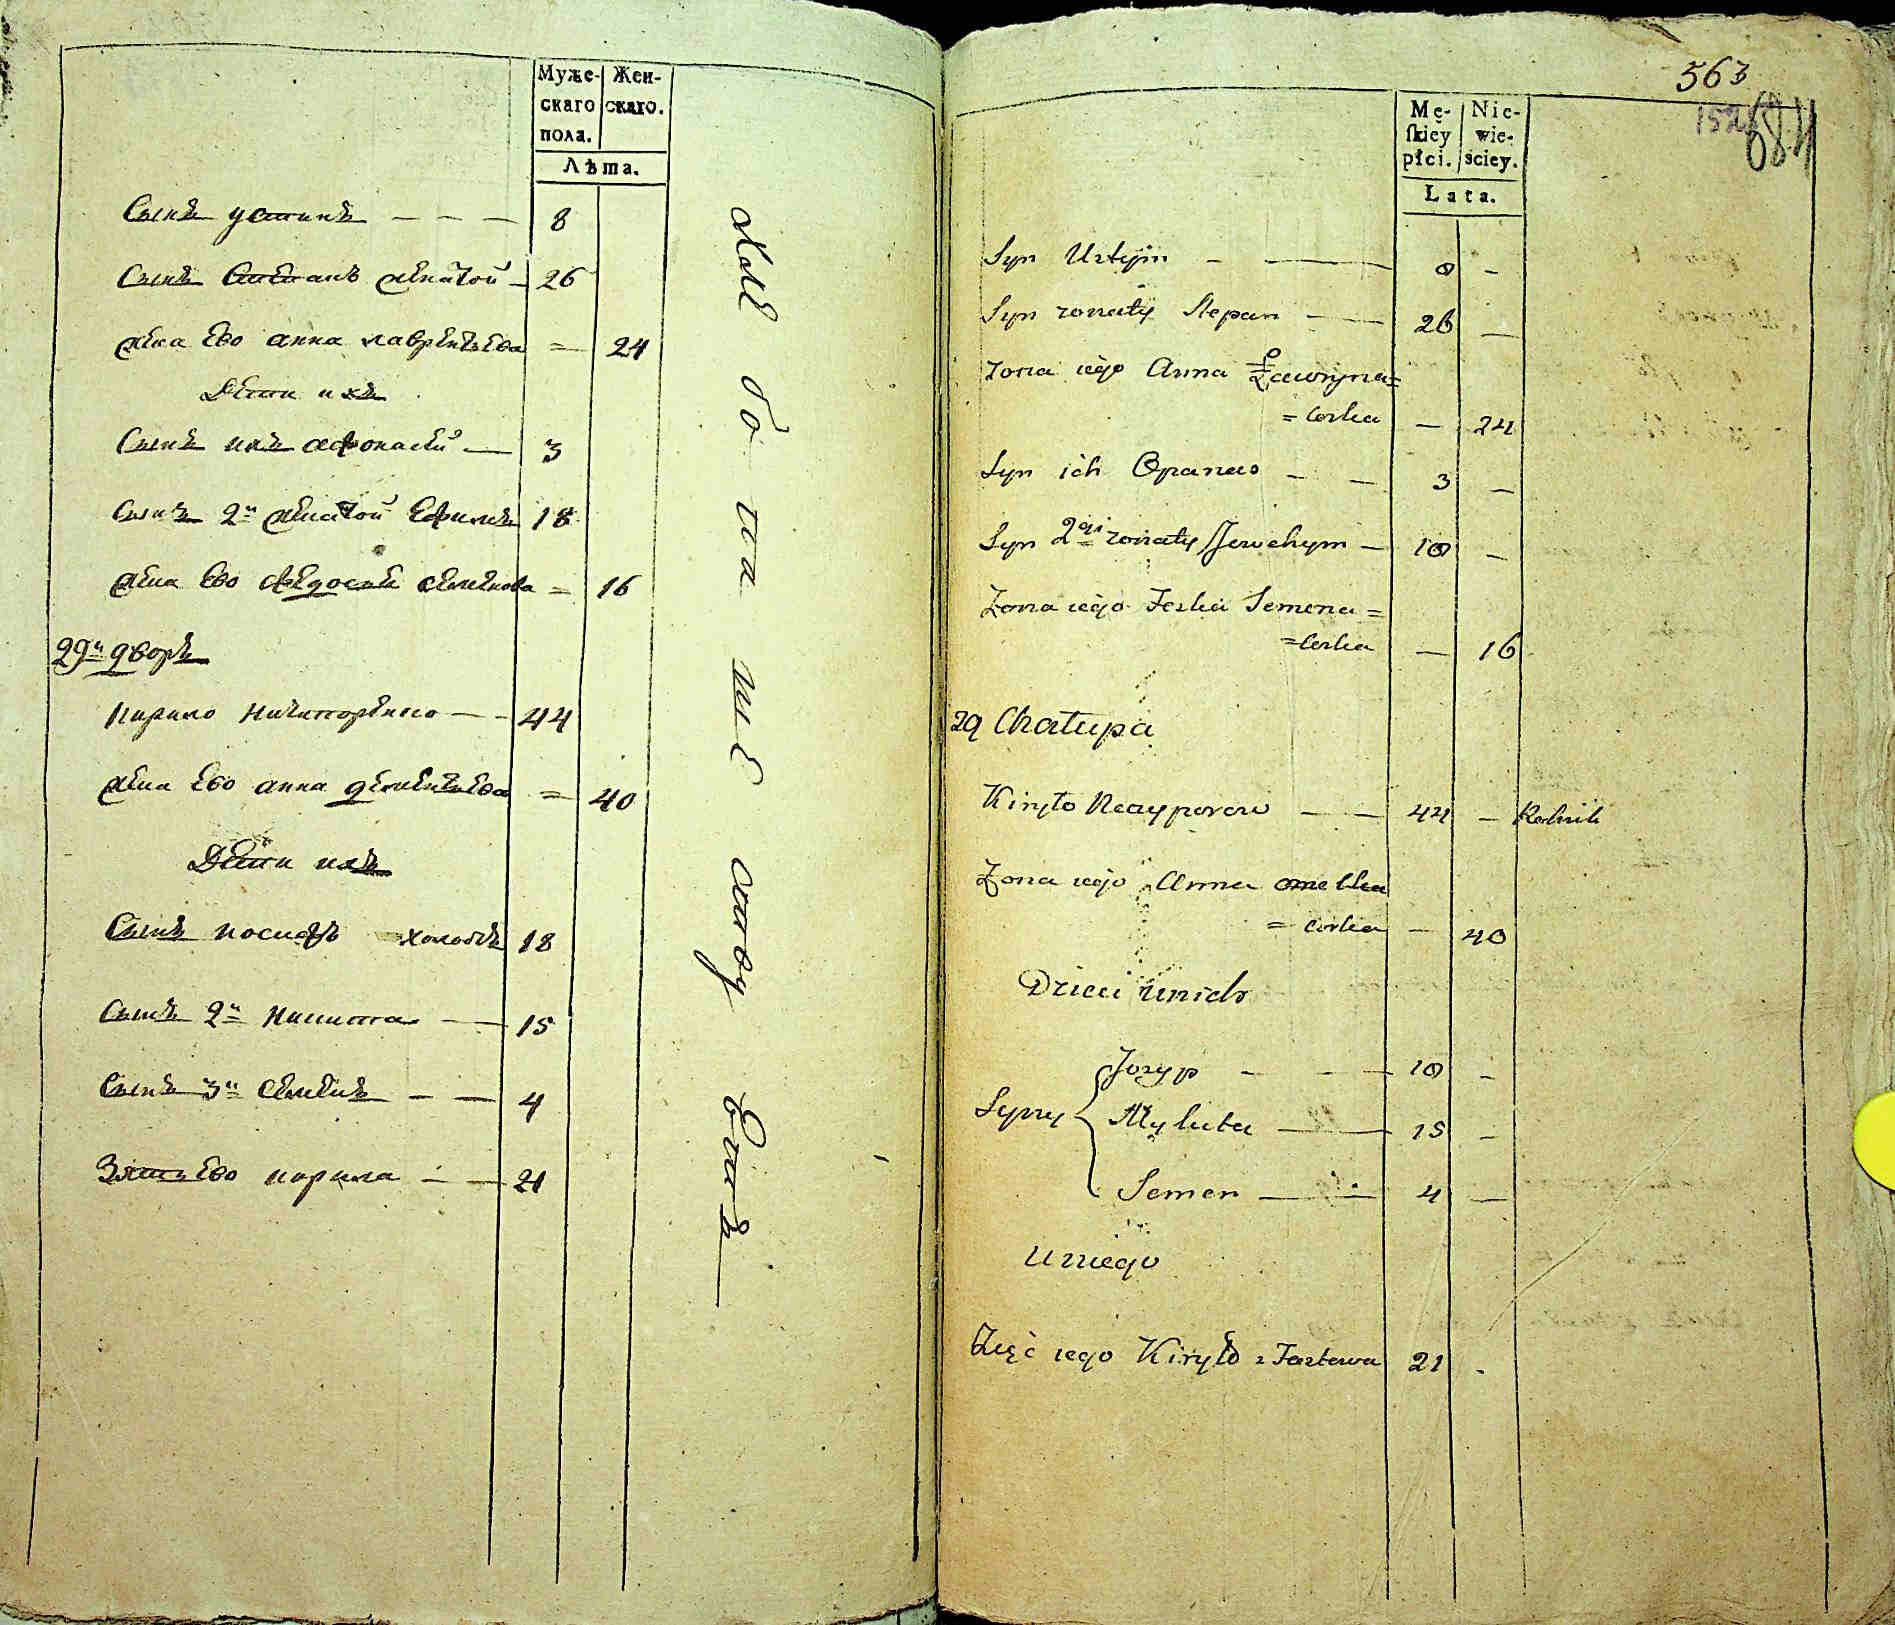 Муже-
скаго
пола.
Жен-
скаго.
Лѣта.
Сынъ устинъ 8
Сынъ Степанъ женатой 26
жена Ево анна лаврентьева 24
Дети ихъ
Сынъ ихъ афонасей 3
Сынъ 2й женатой Ефимъ 18
жена Ево федосья семенова 16
29й дворъ
Кирило Ничипоренко 44
жена Ево анна дементьева 40
Дети ихъ
Сынъ иосифъ холостъ 18
Сынъ 2й Никита 15
Сынъ 3й Семенъ 4
Зять Ево кирила 21
563
684
Mę-
skiey
płci.
Nie-
wie-
sciey.
Lata.
Syn Ustym — 8 –
Syn zonaty Stepan — 26 —
Zona iego Anna Ławryna=
= corka — 24
Syn ich Opanas – – 3 —
Syn 2gi zonaty Jewchym — 18 –
Zona iego Feska Semena=
=corka — 16
29 Chałupa
Kiryło Neczyporow — — 44 — Rolnik
Zona iego Anna
= corka — 40
Dzieci unich
Jozyp – – — 18 –
Syny Mykita — 15 –
Semen — – 4 —
Uniego
Zięć iego Kiryło z Fastowa 21 -